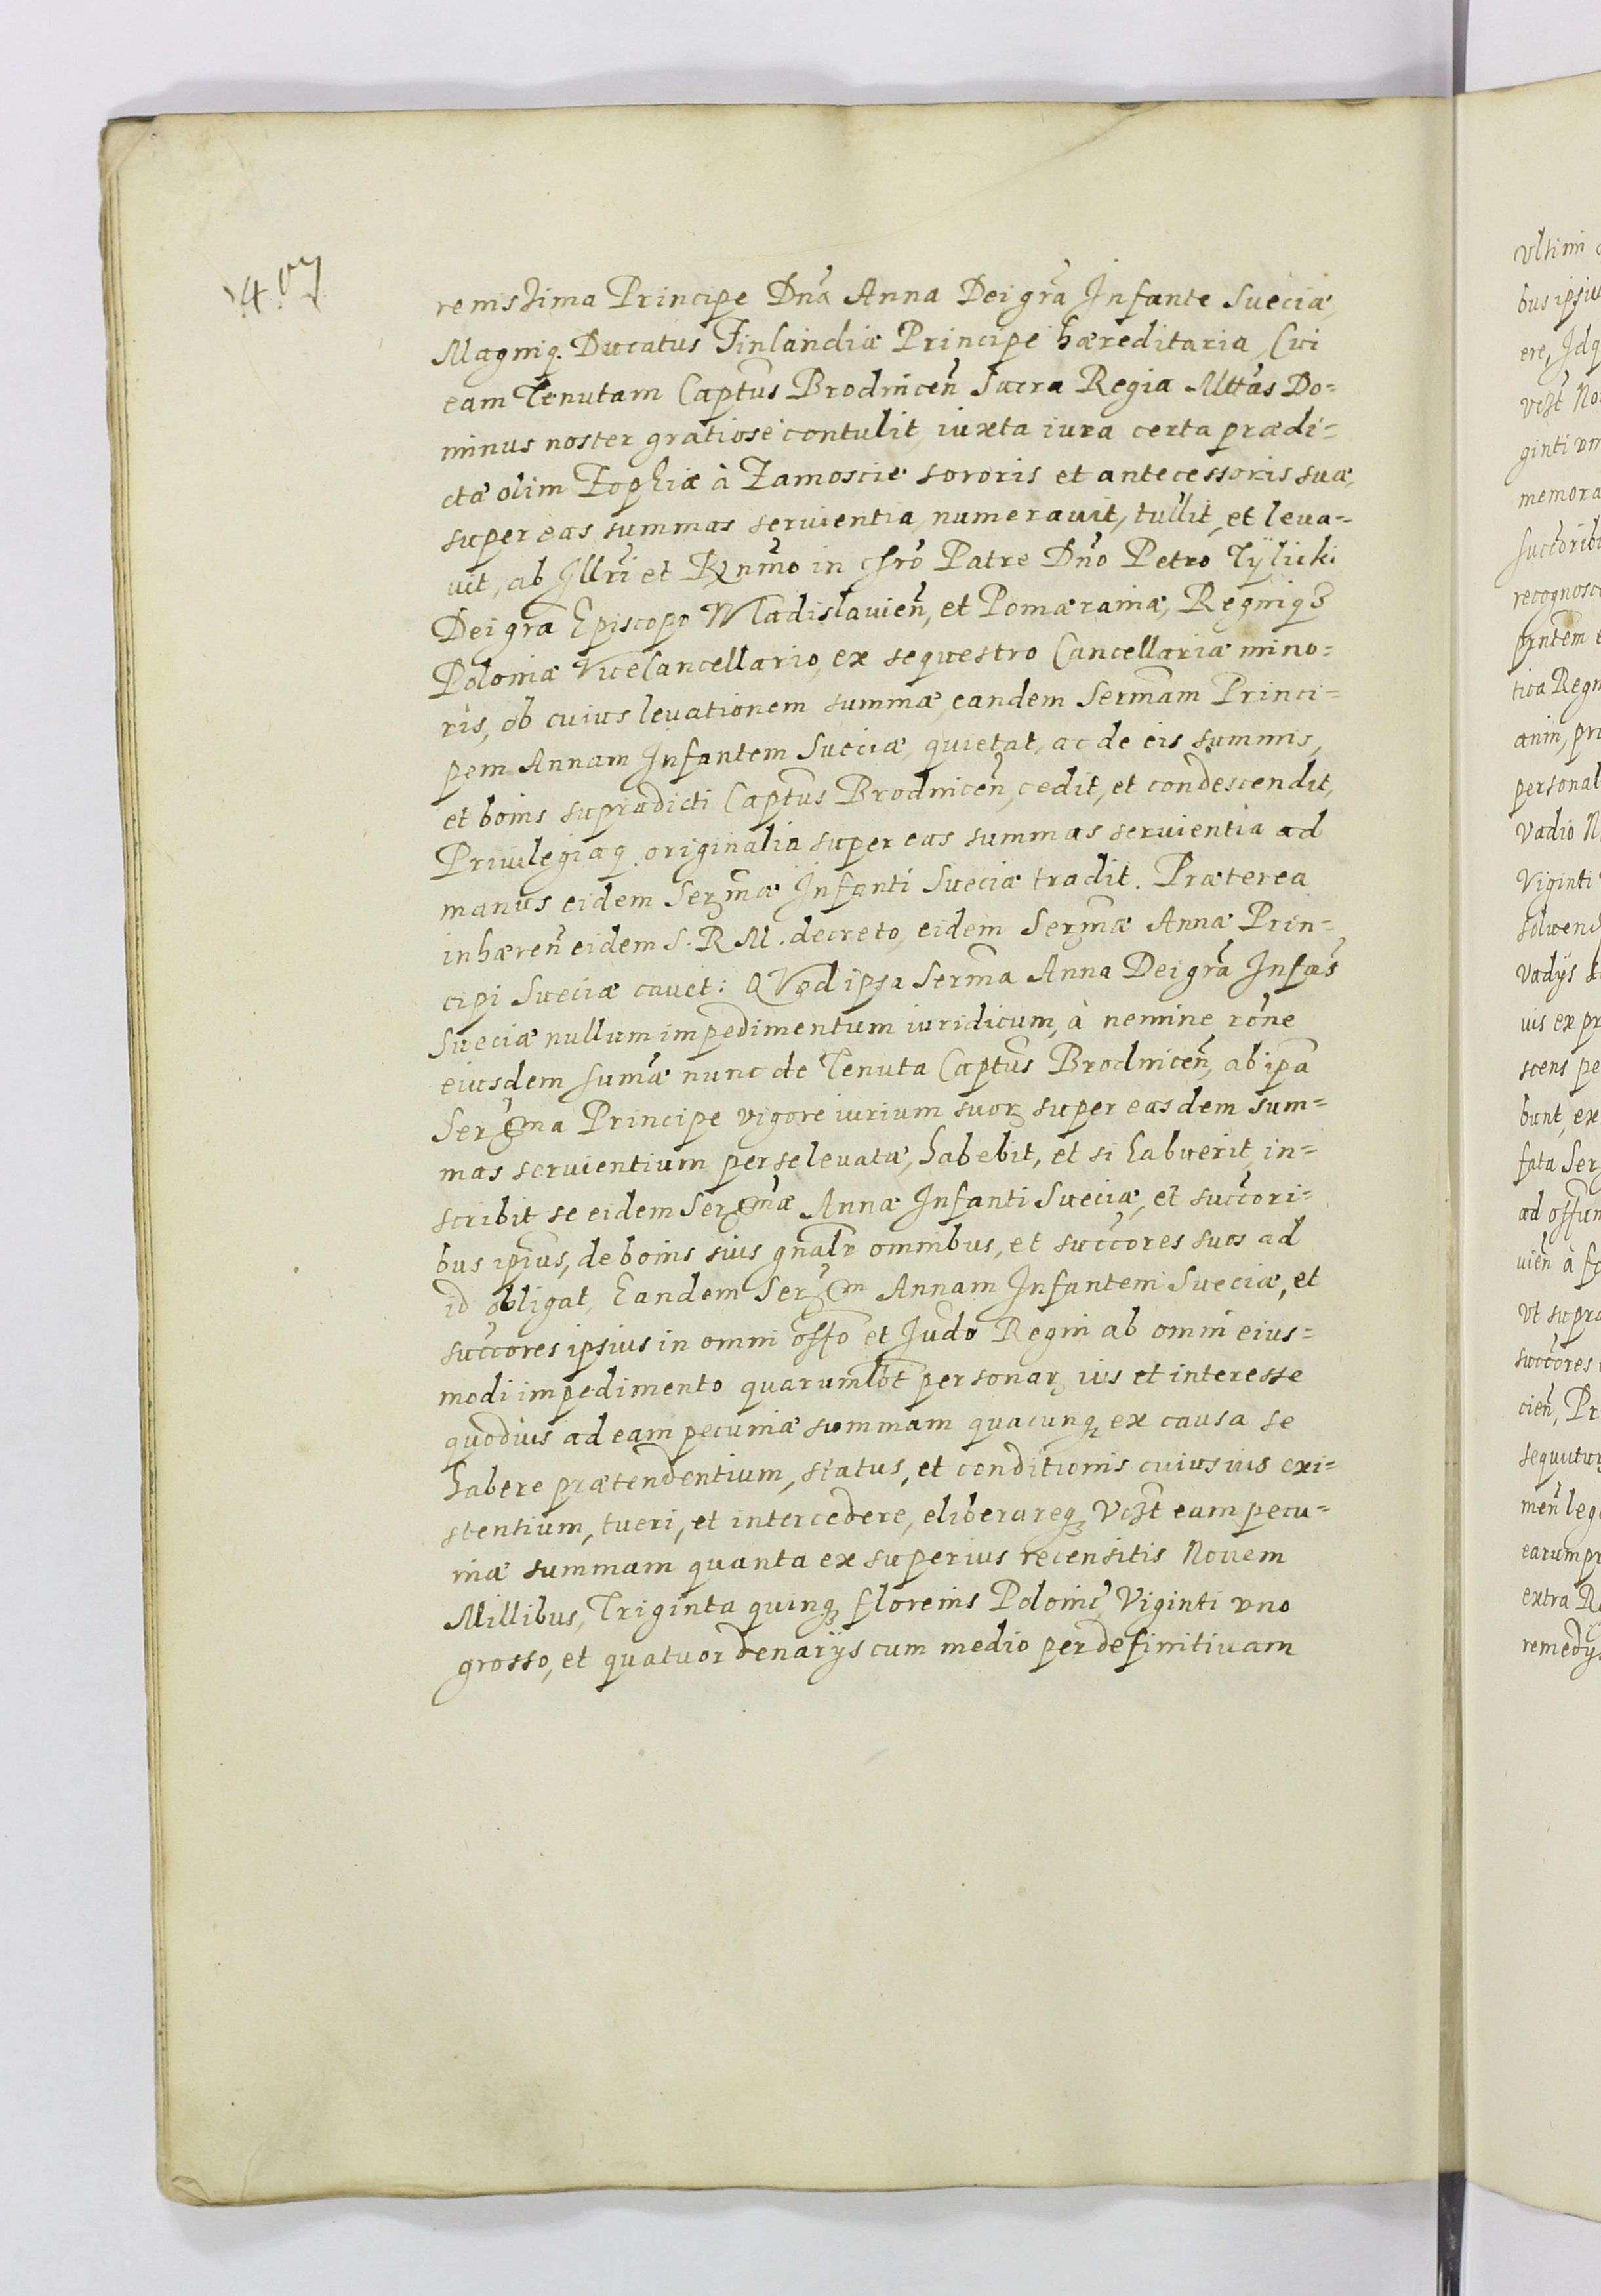 407
remssima Principe Dna Anna Dei gra Infante Sueciæ,
Magniq. Ducatus Finlandiæ Principe hæreditaria, Cui
eam Tenutam Captus Brodnicen Sacra Regia Mttas Do=
minus noster gratiosè contulit, iuxta iura certa prædi=
ctæ olim Zophiæ à Zamoscie sororis et antecessoris suæ,
super eas summas seruientia, numerauit, tullit, et leua=
uit, ab Illri et Rndmo in Chro Patre Dno Petro Tÿlicki
Dei gra Episcopo Wladislauien, et Pomæraniæ, Regniq3
Poloniæ ViceCancellario, ex sequestro Cancellariæ mino=
ris, ob cuius leuationem summæ, eandem Sermam Princi=
pem Annam Infantem Sueciæ, quietat, ac de eis summis,
et bonis supradicti Captus Brodnicen, cedit, et condescendit,
Priuilegiaq. originalia super eas summas seruientia ad
manus eidem Sermæ Infanti Sueciæ tradit. Præterea
inhæren eidem S. R M. decreto, eidem Sermæ Annæ Prin=
cipi Sueciæ cauet: QVod ipsa Serma Anna Dei gra Infas
Sueciæ nullum impedimentum iuridicum, à nemine rone
eiusdem sumæ nunc de Tenuta Captus Brodnicen, ab ipa
Serma Principe vigore iurium suor super easdem sum=
mas seruientium per se leuatæ, habebit, et si habuerit, in=
scribit se eidem Sermæ Annæ Infanti Sueciæ, et succori=
bus ipius, de bonis suis gnalr omnibus, et succores suos ad
id obligat, Eandem Serm Annam Infantem Sueciæ, et
succores ipsius in omni offo et Judo Regni ab omni eius=
modi impedimento quarumlbt personar ius et interesse
quoduis ad eam pecuniæ summam quacunq ex causa se
habere prætendentium, status, et conditionis cuiusuis exi=
stentium, tueri, et intercedere, eliberareq Vost eam pecu=
niæ summam quanta ex superius recensitis Nouem
Millibus, Triginta quinq florenis Polonic Viginti vno
grosso, et quatuor denarijs cum medio per definitiuam
vltimi
bus ipsiu
ere, Idq
vest No
ginti vn
memora
succorib
recognosc
pntem
tica Regn
anin, pri
personal
Vadio N
Viginti
soluend
vadijs
uis ex pr
scens pe
bunt, ex
fata Ser
ad offum
uien à
vt supra
succores
cien, Pr
sequutur
men lege
earum pr
extra R
remedijs